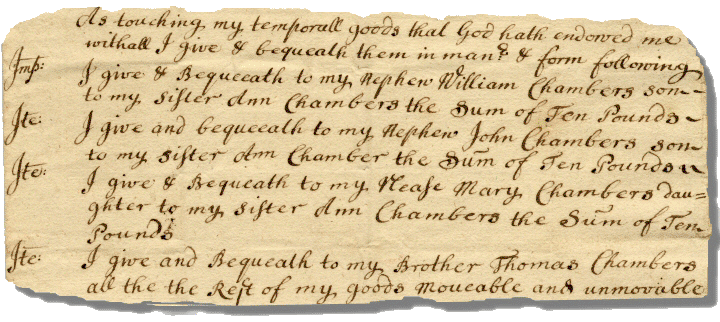 As touching my temporall goods that God hath endowed me
withall I give & bequeath them in man.r & form following
Imp: I give & Bequeeath to my Nephew William Chambers son-
to my sister Ann Chambers the Sum of Ten Pounds-
Ite: I give and bequeeath to my Nephew John Chambers son-
to my sister Ann Chamber the Sum of Ten Pounds
Ite: I give & Bequeath to my Nease Mary Chambers dau=
ghter to my sister Ann Chambers the Sum of Ten-
Pounds
Ite: I give and Bequeath to my Brother Thomas Chambers
all the the Rest of my goods moveable and unmovable